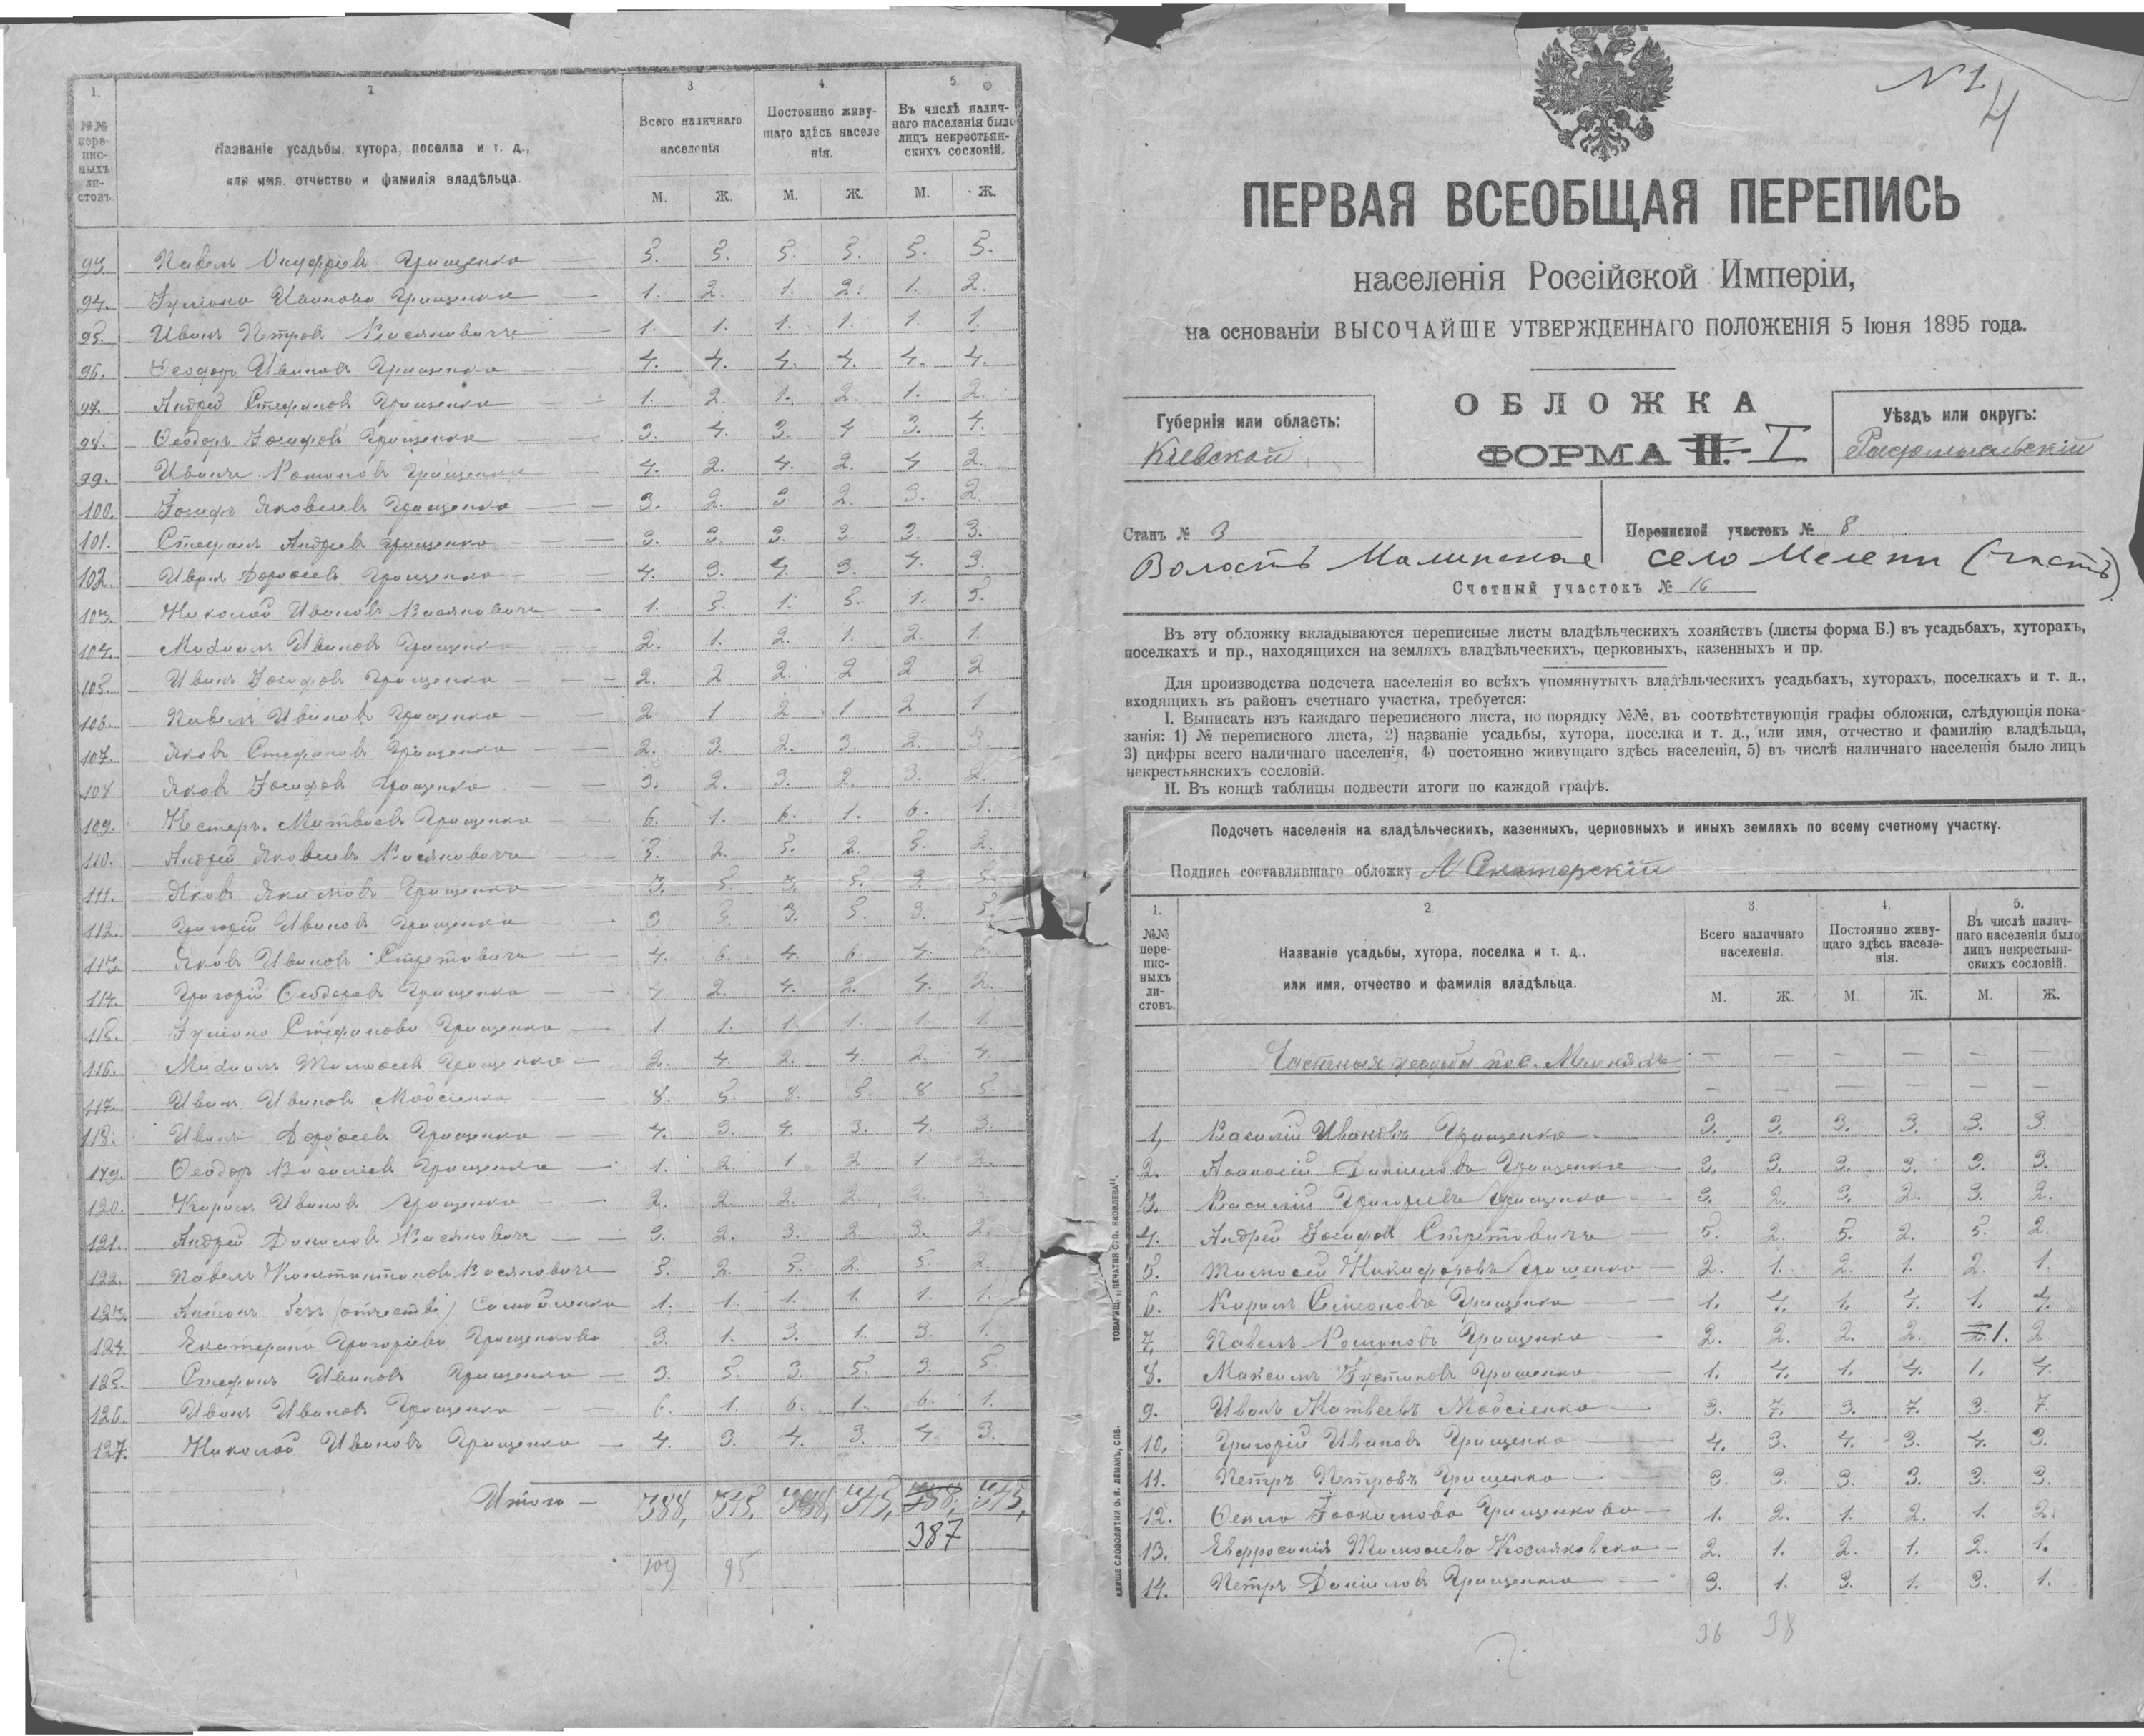 1. 2 3 4. 5.
№№ пере-пис-ныхъ ли-стовъ.
Названіе усадьбы, хутора, поселка и т. д.,
или имя, отчество и фамилія владѣльца.
Всего наличнаго населенія
Постоянно живу-щаго здѣсь населе-нія.
Въ числѣ налич-наго населенія было лицъ некрестьян-скихъ сословій.
М. Ж. М. Ж. М. Ж.
93 Павелъ Онуфріевъ Грищенко 5. 5. 5. 5. 5. 5.
94. Іуліана Иванова Грищенко 1. 2. 1. 2. 1. 2.
95. Иванъ Петровъ Васяновичъ 1. 1. 1. 1. 1. 1.
96. Ѳеодоръ Ивановъ Грищенко 4. 4. 4. 4. 4. 4.
97. Андрей Стефановъ Грищенко 1. 2. 1. 2. 1. 2.
98. Ѳеодоръ Іосифовъ Грищенко 3. 4. 3. 4 3. 4.
99. Иванъ Романовъ Грищенко 4. 2. 4. 2. 4 2.
100. Іосифъ Яковлевъ Грищенко 3. 2. 3 2. 3. 2.
101. Стефанъ Андреевъ Грищенко 3. 3. 3. 3. 3. 3.
102. Иванъ Дороѳеевъ Грищенко 4. 3. 4 3. 4. 3.
103. Николай Ивановъ Васяновичъ 1. 5. 1. 5. 1. 5.
104. Михаилъ Ивановъ Грищенко 2. 1. 2. 1. 2. 1.
105. Иванъ Іосифовъ Грищенко 2. 2 2. 2 2 2
106. Павелъ Ивановъ Грищенко 2 1 2 1 2 1
107. Яковъ Стефановъ Грищенко 2. 3. 2. 3. 2. 3.
108 Яковъ Іосифовъ Грищенко 3. 2. 3. 2. 3. 2.
109. Нестеръ Матвѣевъ Грищенко 6. 1. 6. 1. 6. 1.
110. Андрей Яковлевъ Васяновичъ 5. 2. 5. 2. 5. 2.
111. Яковъ Якимовъ Грищенко 3. 5. 3. 5. 3. 5.
112. Григорій Ивановъ Грищенко 3 5. 3. 5. 3. 5.
113. Яковъ Ивановъ Стретовичъ 4. 6. 4. 6. 4. 6.
114. Григорій Ѳеодоровъ Грищенко 4 2. 4. 2. 4. 2.
115. Іуліана Стефанова Грищенко 1. 1. 1. 1. 1. 1.
116. Михаилъ Тимоѳеевъ Грищенко 2. 4. 2. 4. 2. 4.
117. Иванъ Ивановъ Мойсіенко 8. 5. 8. 5. 8 5.
118. Иванъ Дороѳеевъ Грищенко 4. 3. 4. 3. 4. 3.
119. Ѳеодоръ Василіевъ Грищенко 1. 2 1 2 1 2.
120. Кирилъ Ивановъ Грищенко 2. 2. 2. 2. 2. 3.
121. Андрей Даниловъ Васяновичъ 3. 2. 3. 2. 3. 2.
122. Павелъ Константиновъ Васяновичъ 5. 2. 5. 2. 5 2.
123. Антонъ безъ (отчества) Самойленко 1. 1. 1. 1. 1. 1.
124. Екатерина Григоріева Грищенкова 3. 1. 3. 1. 3. 1.
125. Стефанъ Ивановъ Грищенко 3. 5. 3. 5 3. 5.
126. Иванъ Ивановъ Грищенко 6. 1. 6. 1. 6. 1.
127. Николай Ивановъ Грищенко 4. 3. 4. 3. 4. 3.
Итого — 388, 375, 388, 375, 388, 375,
387
109 95
N 1
4
ПЕРВАЯ ВСЕОБЩАЯ ПЕРЕПИСЬ
населенія Россійской Имперіи,
на основаніи ВЫСОЧАЙШЕ УТВЕРЖДЕННАГО ПОЛОЖЕНІЯ 5 Іюня 1895 года.
ОБЛОЖКА
ФОРМА II. I
Губернія или область:
Кіевской
Уѣздъ или округъ:
Радомысльскій
Станъ № 3
Переписной участокъ № 8
Волость Малинская село Мелени (часть)
Счетный участокъ № 16
Въ эту обложку вкладываются переписные листы владѣльческихъ хозяйствъ (листы форма Б.) въ усадьбахъ, хуторахъ,
поселкахъ и пр., находящихся на земляхъ владѣльческихъ, церковныхъ, казенныхъ и пр.
Для производства подсчета населенія во всѣхъ упомянутыхъ владѣльческихъ усадьбахъ, хуторахъ, поселкахъ и т. д.,
входящихъ въ районъ счетнаго участка, требуется:
I. Выписать изъ каждаго переписного листа, по порядку №№, въ соотвѣтствующія графы обложки, слѣдующія пока-
занія: 1) № переписного листа, 2) названіе усадьбы, хутора, поселка и т. д., или имя, отчество и фамилію владѣльца,
3) цифры всего наличнаго населенія, 4) постоянно живущаго здѣсь населенія, 5) въ числѣ наличнаго населенія было лицъ
некрестьянскихъ сословій.
II. Въ концѣ таблицы подвести итоги по каждой графѣ.
Подсчетъ населенія на владѣльческихъ, казенныхъ, церковныхъ и иныхъ земляхъ по всему счетному участку.
Подпись составлявшаго обложку А Сенаторскій
1. 2. 3. 4. 5.
№№ пере-пис-ныхъ ли-стовъ.
Названіе усадьбы, хутора, поселка и т. д.,
или имя, отчество и фамилія владѣльца.
Всего наличнаго населенія.
Постоянно живу-щаго здѣсь населе-нія.
Въ числѣ налич-наго населенія было лицъ некрестьян-скихъ сословій.
М. Ж. М. Ж. М. Ж.
Частныя усадьбы по с. Меленяхъ — — — — — —
— — — — — —
1, Василій Ивановъ Грищенко 3. 3. 3. 3. 3. 3
2. Аѳанасій Даніиловъ Грищенко 3. 3. 3. 3. 3. 3.
3. Василій Григоріевъ Грищенко 3. 2. 3. 2. 3. 2.
4. Андрей Іосифовъ Стретовичъ 5. 2. 5. 2. 5. 2.
5. Тимоѳей Никифоровъ Грищенко 2. 1. 2. 1. 2. 1.
6. Кирилъ Симеоновъ Грищенко 1. 4. 1. 4. 1. 4.
7. Павелъ Романовъ Грищенко 2. 2. 2. 2. 2. 1. 2
8. Максимъ Іустиновъ Грищенко 1. 4. 1. 4. 1. 4.
9. Иванъ Матвѣевъ Мойсіенко 3. 7. 3. 7. 3. 7.
10. Григорій Ивановъ Грищенко 4. 3. 4. 3. 4. 3.
11. Петръ Петровъ Грищенко 3. 3. 3. 3. 3. 3.
12. Ѳекла Іоакимова Грищенкова 1. 2. 1. 2. 1. 2.
13. Евфросинія Тимоѳеева Козляковска 2. 1. 2. 1. 2. 1.
14. Петръ Даніиловъ Грищенко 3. 1. 3. 1. 3. 1.
36 38
ТОВАРИЩ. „ПЕЧАТНЯ С. П. ЯКОВЛЕВА".